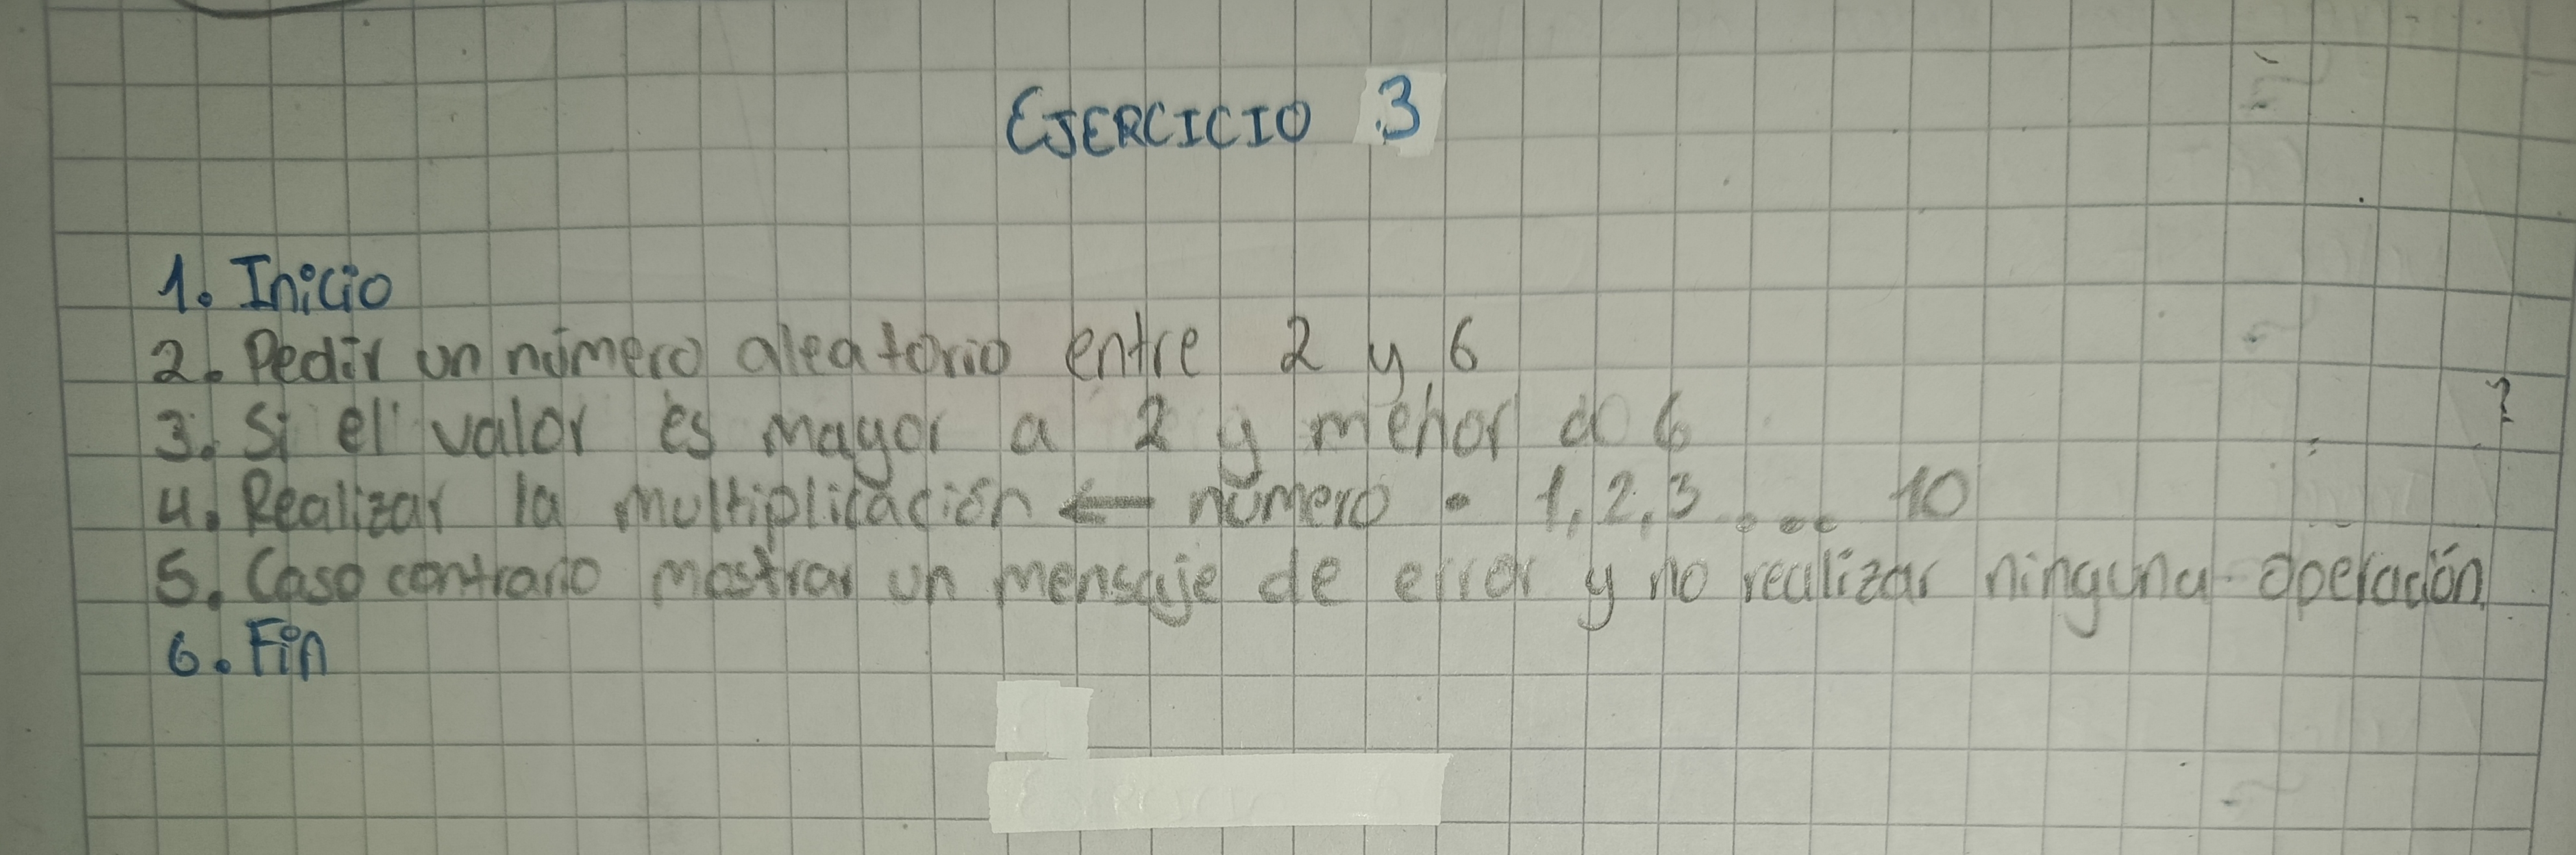 EJERCICIO 3
1. Inicio
2. Pedir un número aleatorio entre 2 y 6
3. Si el valor es mayor a 2 y menor a 6
4. Realizar la multiplicación ← número • 1, 2, 3 .... 10
5. Caso contrario mostrar un mensaje de error y no realizar ninguna operación
6. Fin